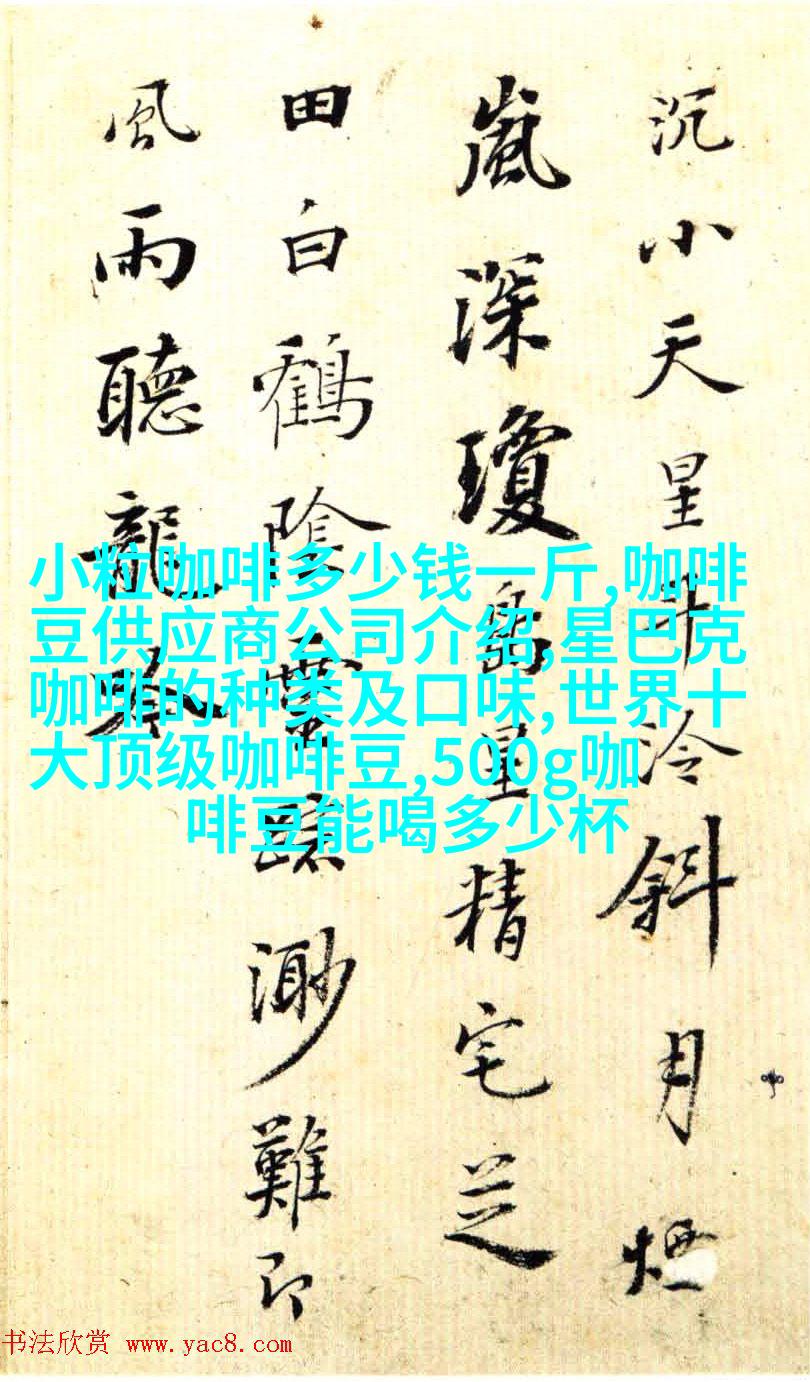 沉小天星斗泠斜月煙
嵐深瓊島星精宅芝
田白鶴陰靈蹤渺難即
風雨聽龍吟
小粒咖啡多少钱一斤,咖啡
豆供应商公司介绍,星巴克
咖啡的种类及口味,世界十
大顶级咖啡豆,500g咖
啡豆能喝多少杯
书法欣赏 www.yac8.com